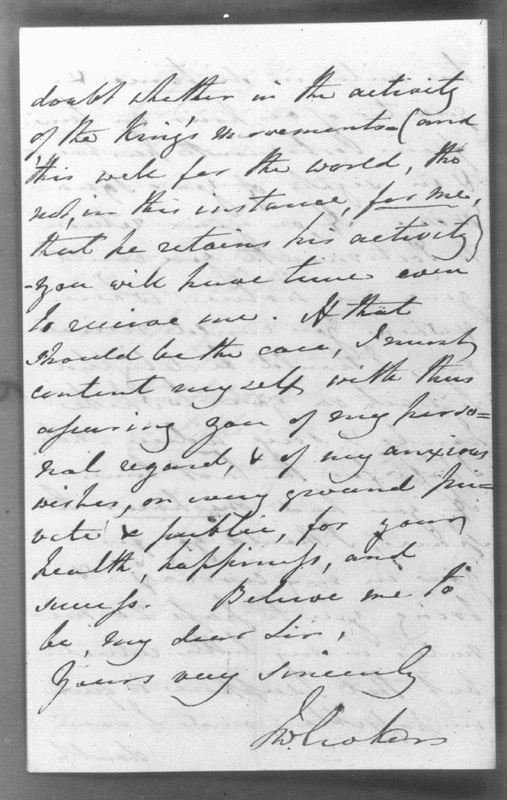 doubt whether in the activity
of the King's movements - (and
'tis well for the world, tho
not, in this instance, for me,
that he retains his activity)
- you will have time even
to receive me. If that
should be the case, I must
content myself with thus
assuring you of my perso=
nal regard, & of my anxious
wishes, on every ground pri=
vate & public, for your
health, happiness, and
success. Believe me to
be, my dear Sir,
Yours very sincerely